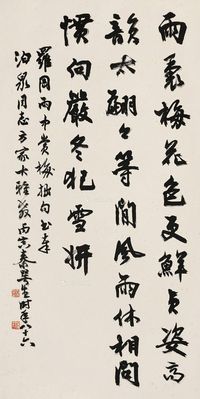 雨裛梅花色更鮮貞姿高
韻太翩々等閒風雨休相問
慣向嚴冬犯雪妍
羅岡雨中賞梅拙句書奉
泊泉同志方家大雅教丙寅秦咢生時年八十六